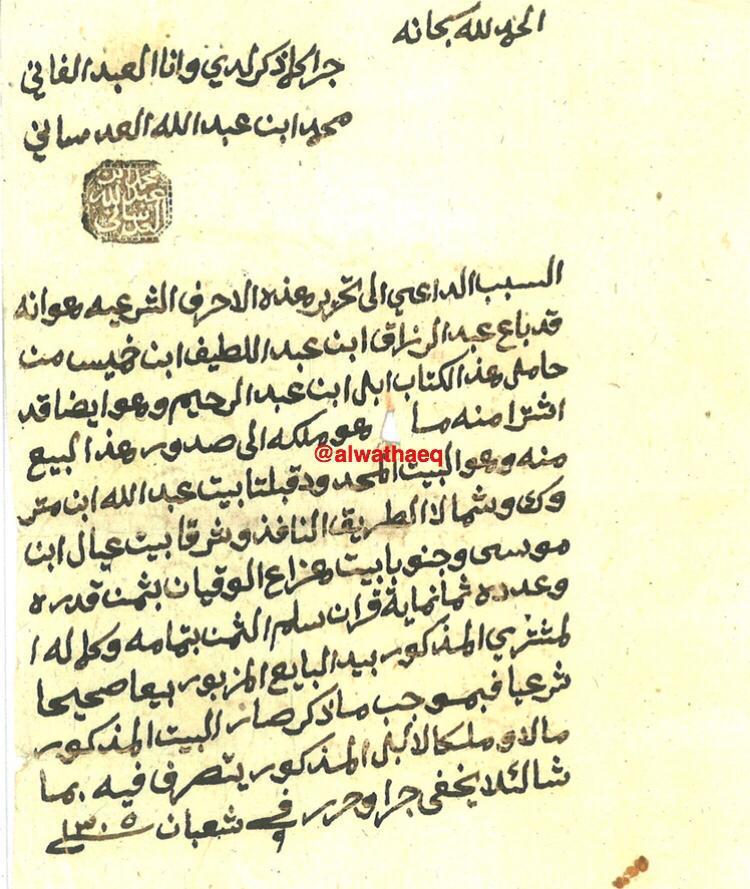 الحمد لله سبحانه
جرا كلما ذكر لدي وانا العبد الفاني
محمد ابن عبد الله العدساني
محمد ابن
عبد الله
العدساني
السبب الداعي الى تحرير هذه الاحرف الشرعيه هو انه
قد باع عبد الرزاق ابن عبد اللطيف ابن خميس من
حامل هذا الكتاب ابل ابن عبد الرحيم وهو ايضا قد
اشترا منه ما هو ملكه الى صدور هذا البيع
@alwathaeq
منه وهو البيت المحدود قبلتا بيت عبد الله ابن متر
وك وشمالا الطريق النافذ وشرقا بيت عيال ابن
موسى وجنوبا بيت هزاع الوقيان بثمن قدره
وعدده ثمانماية قران سلم الثمن بتمامه وكماله ا
لمشتري المذكور بيد البايع المزبور بيعا صحيحا
شرعيا فبموجب ما ذكر صار البيت المذكور
مالا وملكا لابل المذكور يتصرف فيه بما
شا لئلا يخفى جرا وحرر في شعبان ١٣٠٥